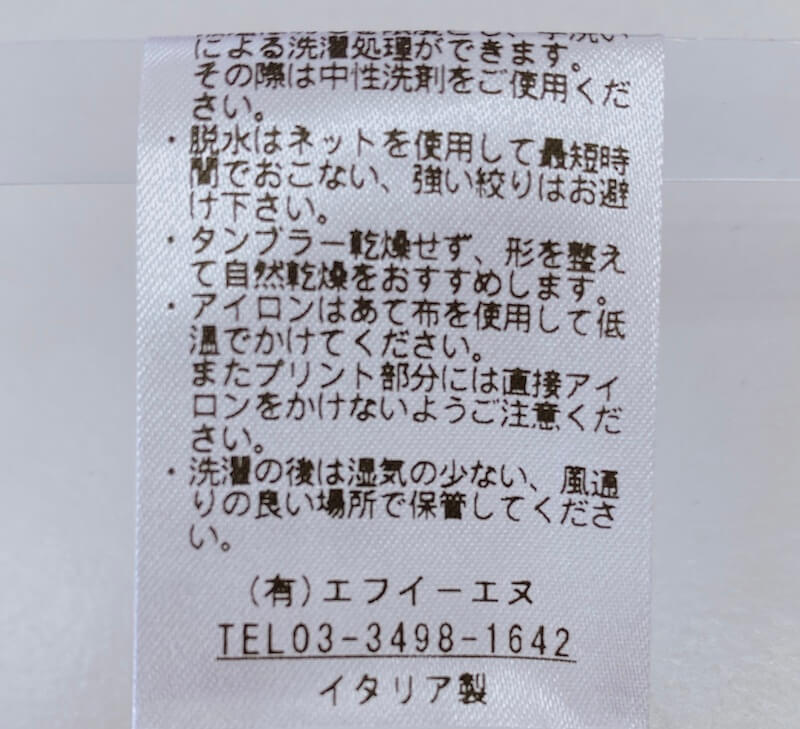 による洗濯処理ができます。
その際は中性洗剤をご使用くだ
さい。
・脱水はネットを使用して最短時
間でおこない、強い絞りはお避
け下さい。
・タンブラー乾燥せず、形を整え
て自然乾燥をおすすめします。
・アイロンはあて布を使用して低
温でかけてください。
またプリント部分には直接アイ
ロンをかけないようご注意くだ
さい。
・洗濯の後は湿気の少ない、風通
りの良い場所で保管してくださ
い。
(有)エフイーエヌ
TEL03-3498-1642
イタリア製